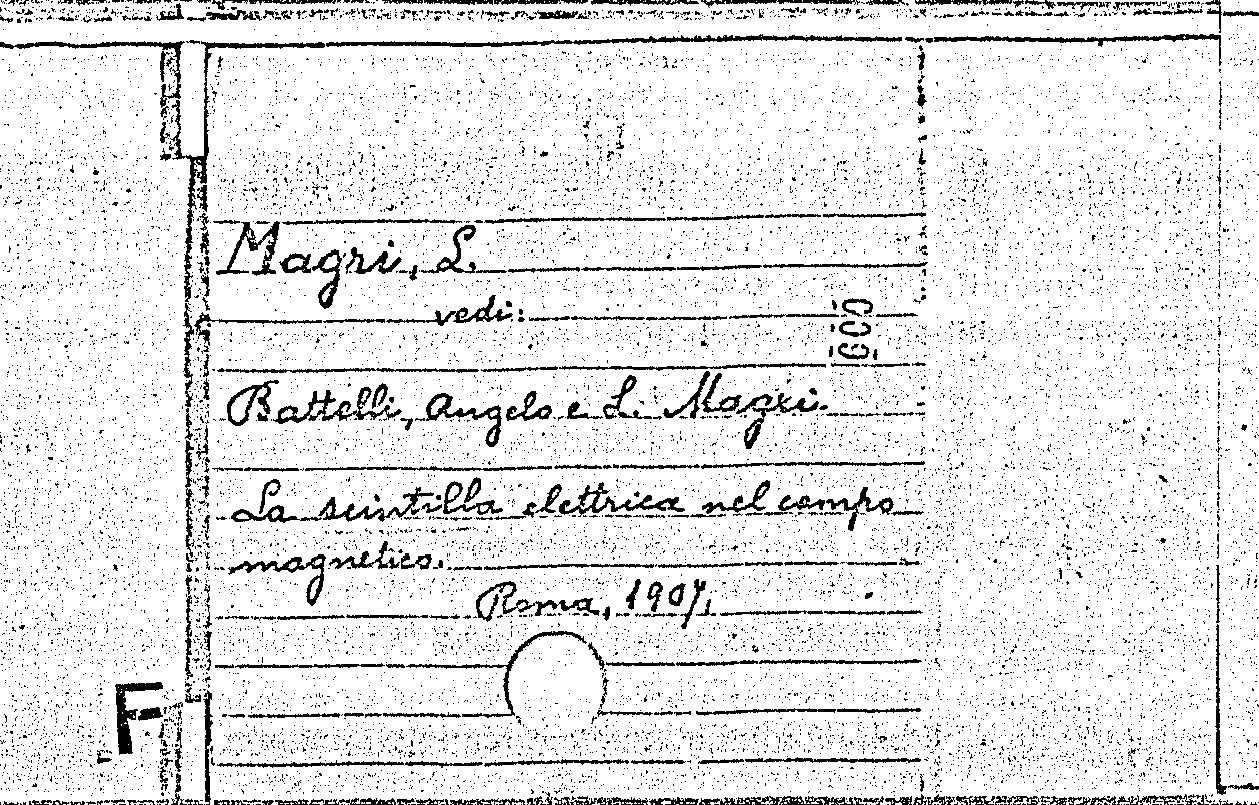 Magri, L.
vedi:
Battelli, Angelo e L. Magri.
La scintilla elettrica nel campo
magnetico.
Roma, 1907,
F